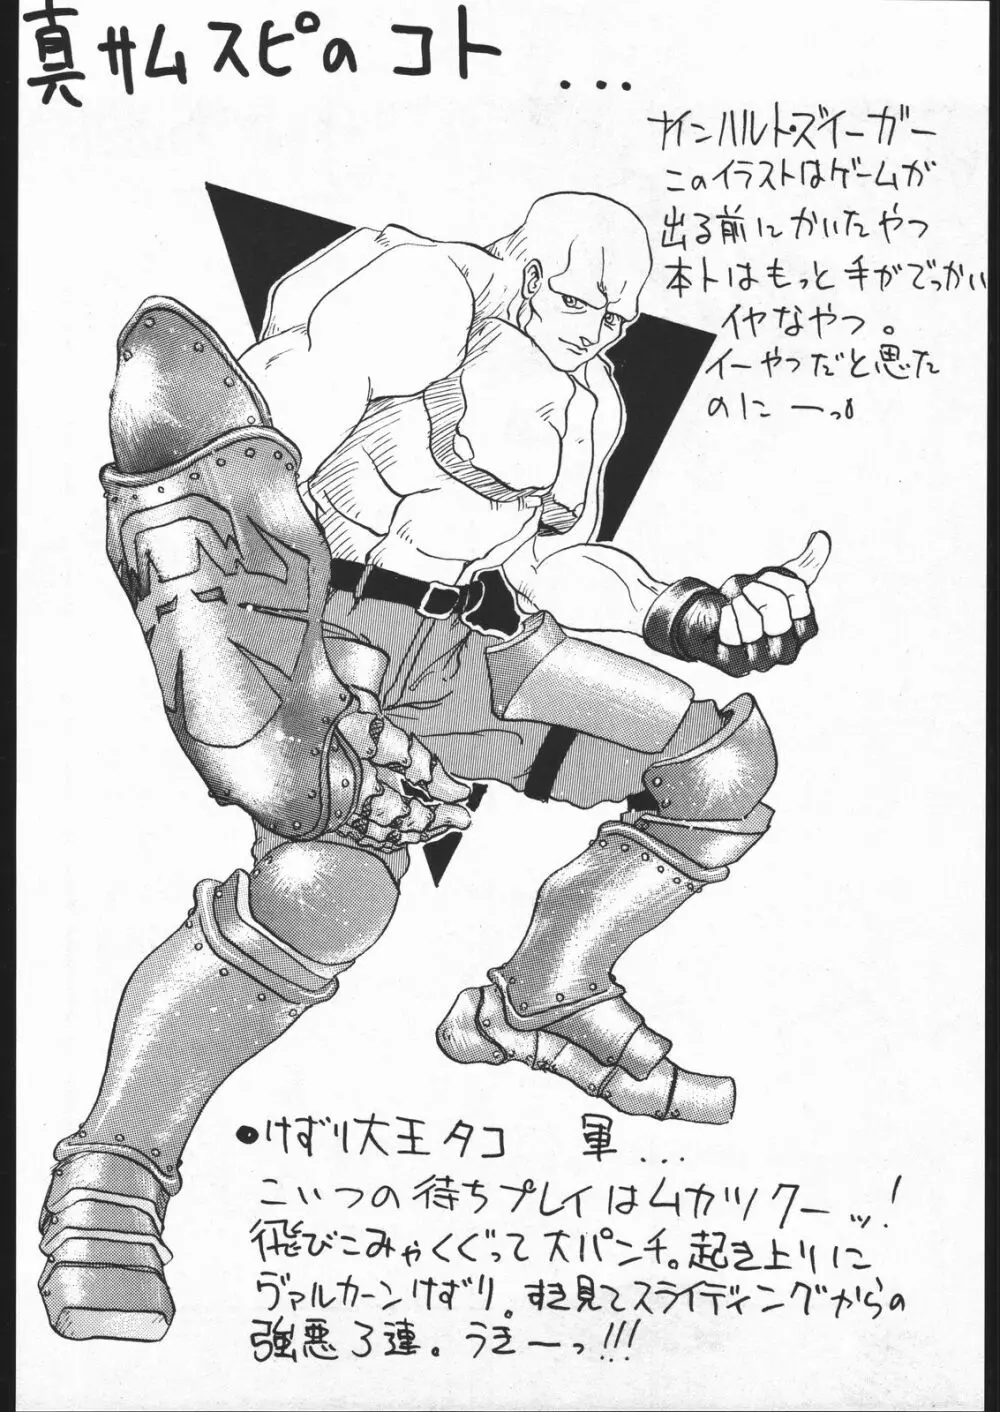 真サムスピのコト...
ナインハルト・ズィーガー
このイラストはゲームが
出る前にかいたやつ
本トはもっと手がでっかい
イヤなやつ。
イーやつだと思った
のにーっ。
•けずり大王タコ 軍...
こいつの待ちプレイはムカツクーッ!
飛びこみゃくぐって大パンチ。起き上りに
ヴァルカーンけずり。すき見てスライディングからの
強悪3連。うぎーっ!!!